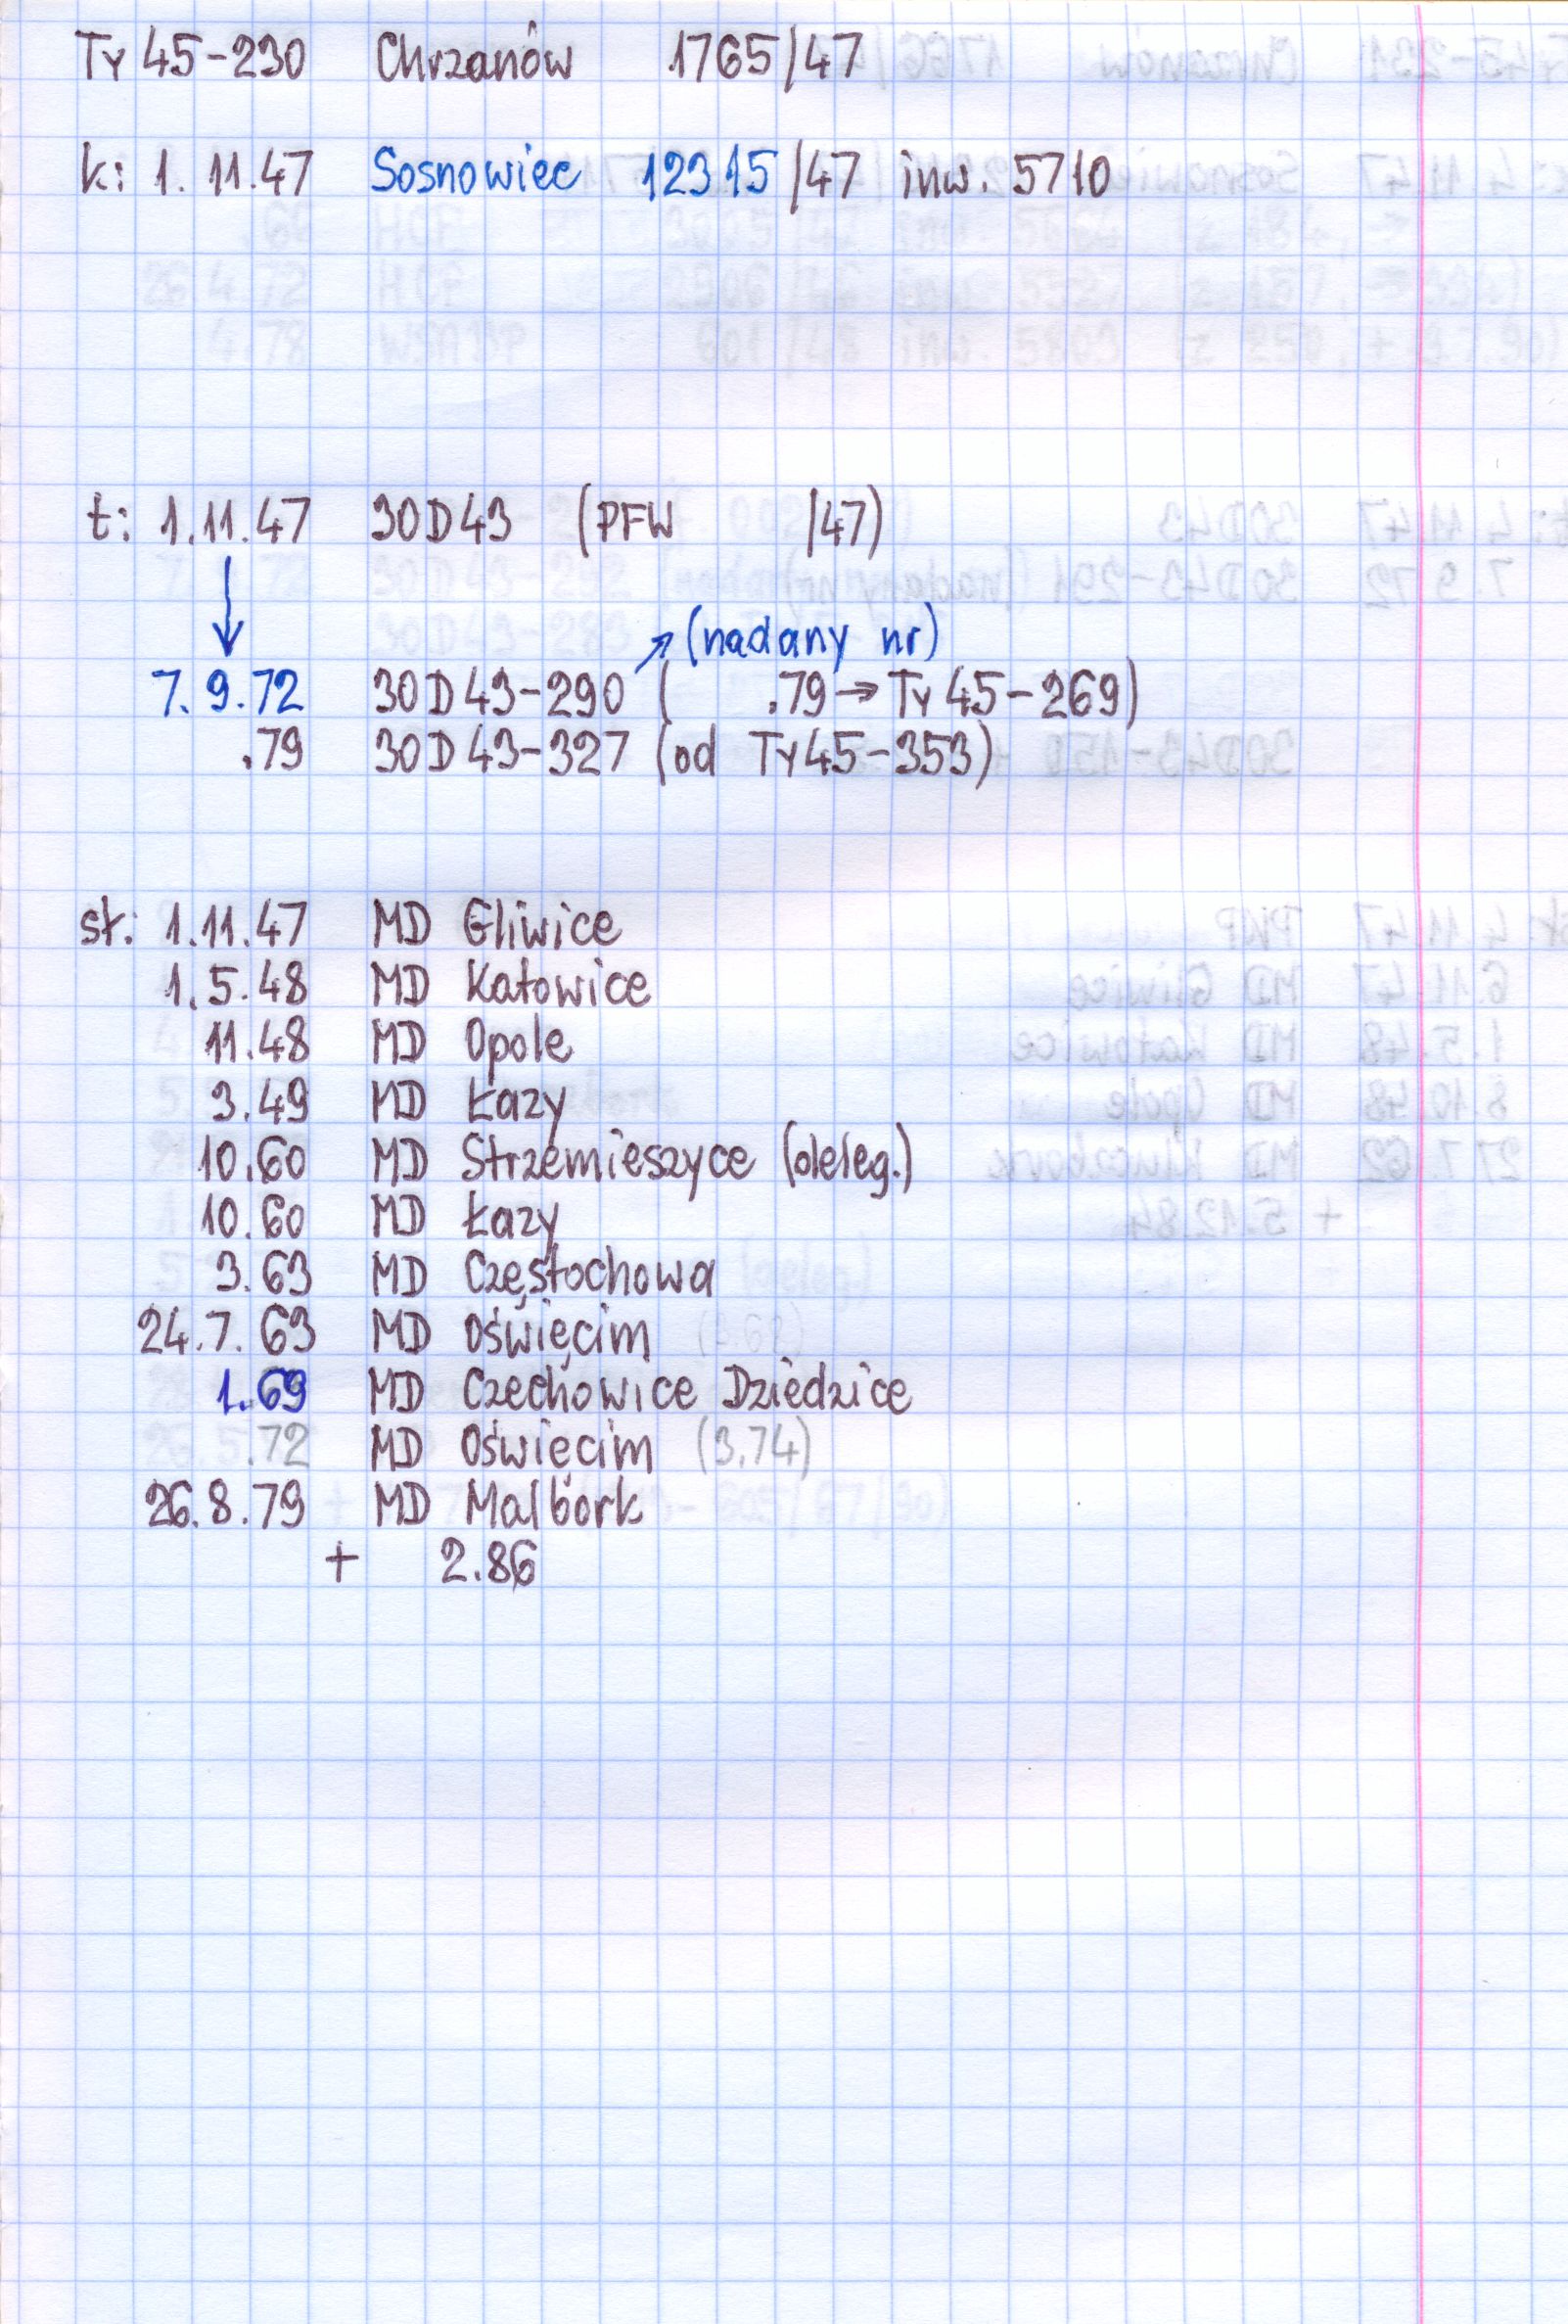 Ty 45-230 Chrzanów 1765/47
k: 1.11.47 Sosnowiec 12315/47 inw. 5710
t: 1.11.47 30D43 (PFW /47)
(nadany nr)
7.9.72 30D43-290 ( .79→Ty45-269)
.79 30D43-327 (od Ty45-353)
st: 1.11.47 MD Gliwice
1.5.48 MD Katowice
11.48 MD Opole
3.49 MD Łazy
10.60 MD Strzemieszyce (deleg.)
10.60 MD Łazy
3.63 MD Częstochowa
24.7.63 MD Oświęcim
1.69 MD Czechowice Dziedzice
26.5.72 MD Oświęcim (3.74)
26.8.79 MD Malbork
+ 2.86